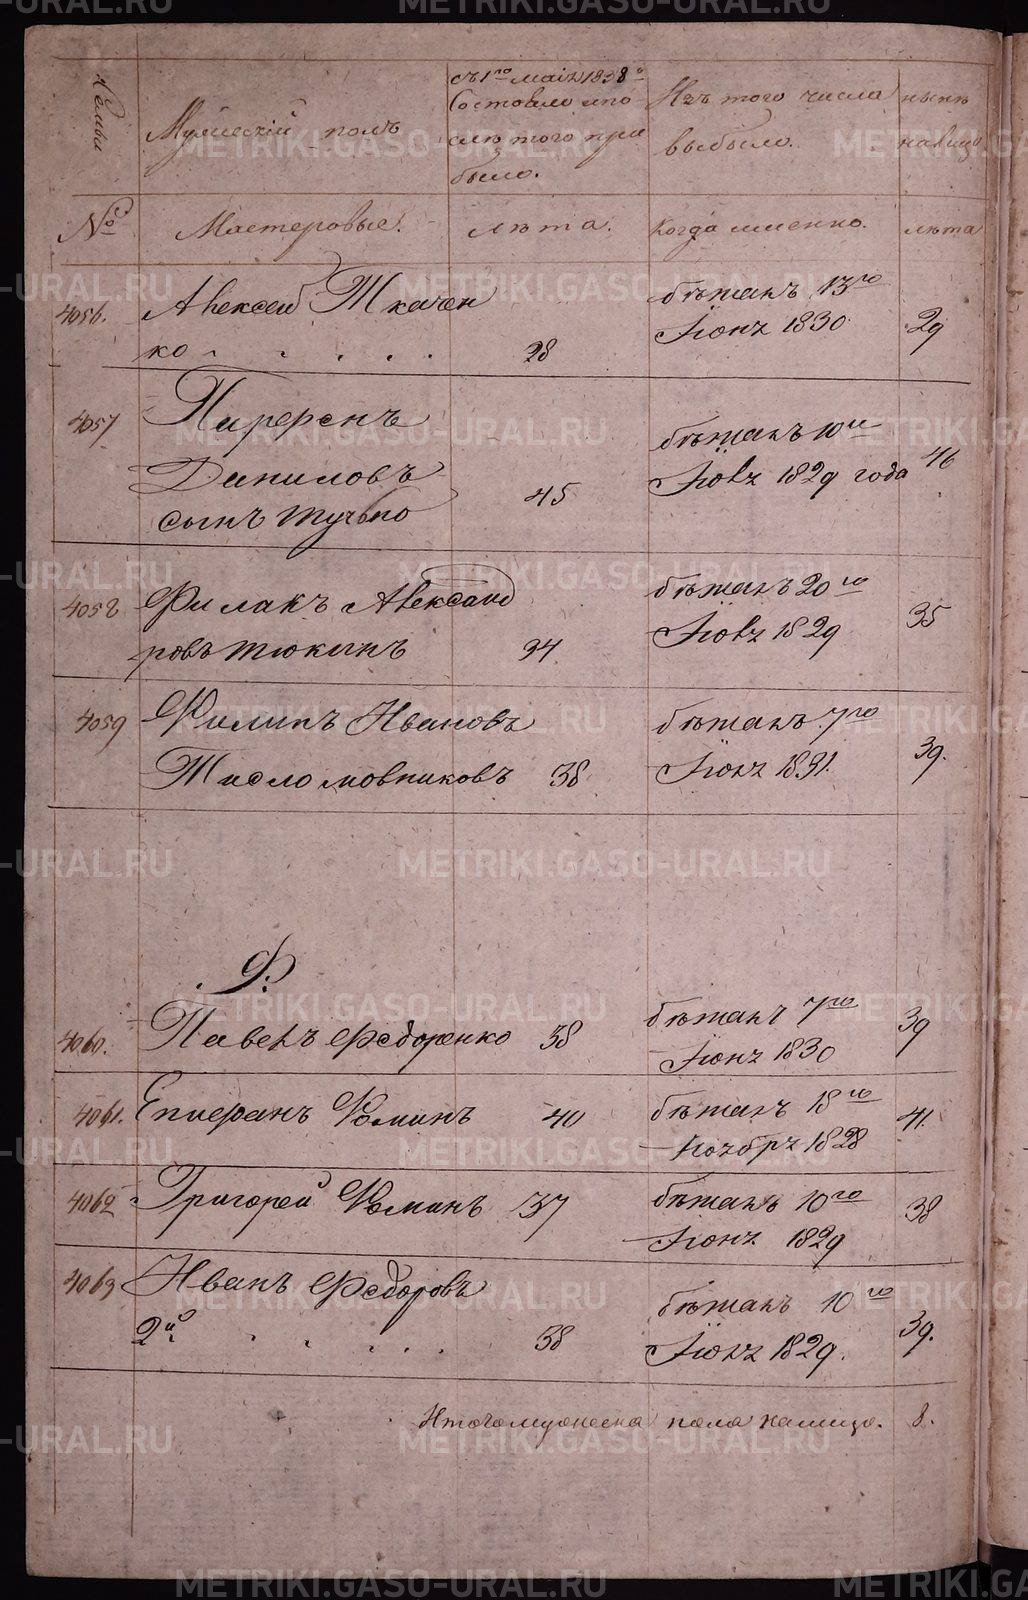 Семьи
Мужескій полъ
съ 1го маія 1838го
Состояло и по
слѣ того при
было.
Изъ того числа
выбыло.
нынѣ
на лицо
№
Мастеровые.
лѣта.
Когда именно.
лѣта
4056.
Алексей Ткачен
ко
28
бѣжалъ 13го
Іюня 1830
29
4057
Парфенъ
Даниловъ
сынъ
45
бѣжалъ 10го
Іюля 1829 года
46
4058
Филатъ Александ
ровъ Тюкинъ
34
бѣжалъ 20го
Іюля 1829
35
4059
Филипъ Ивановъ
38
бѣжалъ 7го
Іюля 1831.
39.
Ф.
4060.
Павелъ Федоренко
38
бѣжалъ 7го
Іюня 1830
39
4061.
Епифанъ Фоминъ
40
бѣжалъ 18го
Ноября 1828
41.
4062
Григорей Фоминъ
37
бѣжалъ 10го
Іюня 1829
38
4063
Иванъ Федоровъ
2й
38
бѣжалъ 10го
Іюля 1829.
39.
Итого мужеска пола на лицо. 8.
METRIKI.GASO-URAL.RU